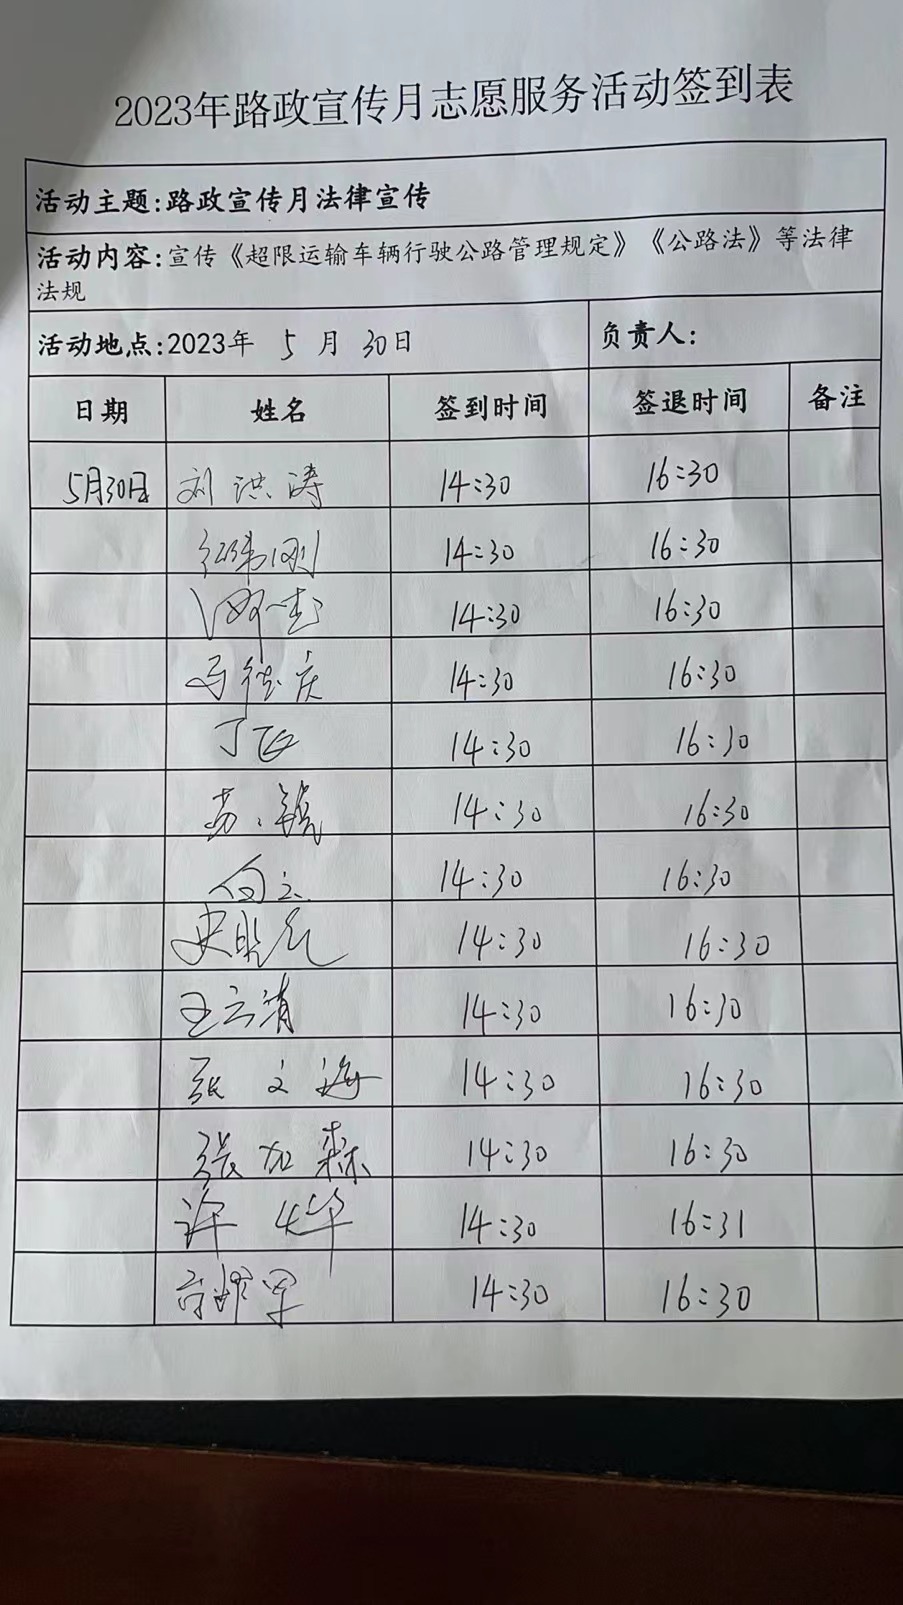 2023年路政宣传月志愿服务活动签到表
活动主题:路政宣传月法律宣传
活动内容:宣传《超限运输车辆行驶公路管理规定》《公路法》等法律
法规
活动地点:2023年 5 月 30日 负责人:
日期 姓名 签到时间 签退时间 备注
5月30日 刘洪涛 14:30 16:30
14:30 16:30
14:30 16:30
马德庆 14:30 16:30
丁飞 14:30 16:30
苏 14:30 16:30
向立 14:30 16:30
史 14:30 16:30
王云清 14:30 16:30
张文海 14:30 16:30
张加森 14:30 16:30
许 华 14:30 16:31
军 14:30 16:30